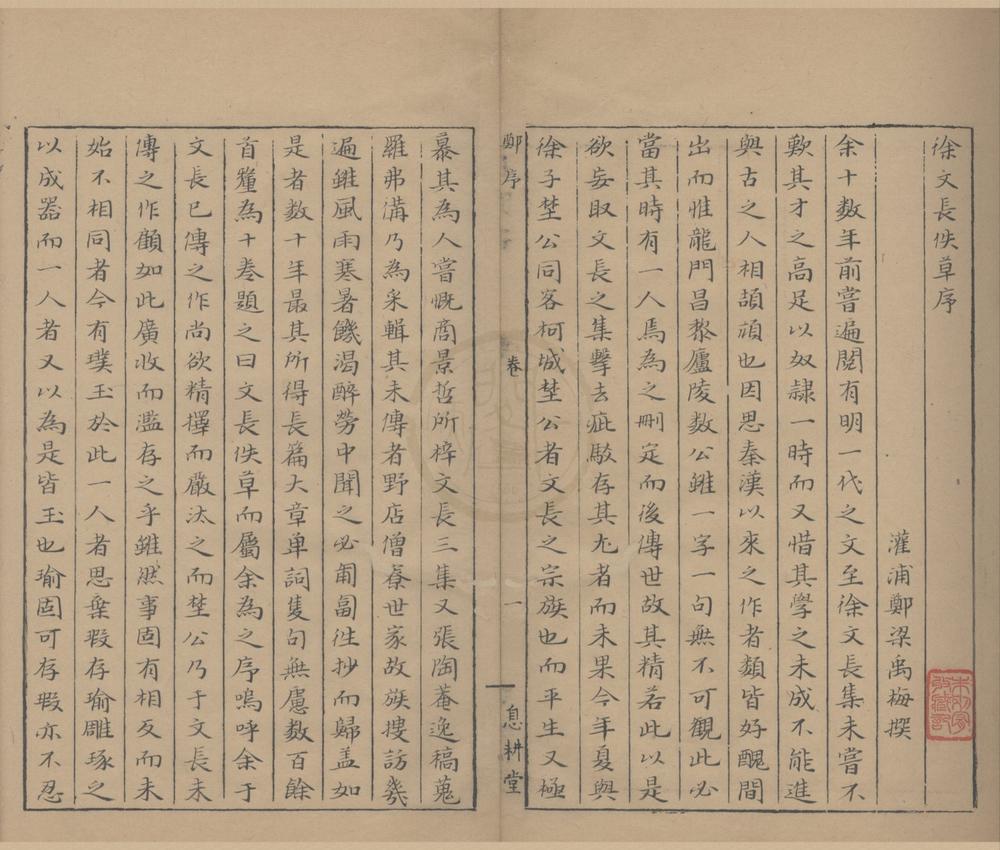 徐文長佚草序
灌浦鄭梁禹梅撰
余十數年前嘗遍閱有明一代之文至徐文長集未嘗不
歎其才之高足以奴隷一時而又惜其學之未成不能進
與古之人相頡頏也因思秦漢以來之作者類皆好醜間
出而惟龍門昌黎廬陵數公雖一字一句無不可觀此必
當其時有一人焉為之刪定而後傳世故其精若此以是
欲妄取文長之集擊去疵駁存其尤者而未果今年夏與
徐子埜公同客柯城埜公者文長之宗族也而平生又極
鄭序 卷 一 息耕堂
慕其為人嘗慨商景哲所梓文長三集又張陶菴逸稿蒐
羅弗溝乃為采輯其未傳者野店僧寮世家故族搜訪幾
遍雖風雨寒暑饑渴醉勞中聞之必匍匐徃抄而歸盖如
是者数十年最其所得長篇大章单詞隻句無慮數百餘
首釐為十卷題之曰文長佚草而屬余為之序嗚呼余于
文長已傳之作尚欲精擇而嚴汰之而埜公乃于文長未
傳之作顧如此廣收而濫存之乎雖然事固有相反而未
始不相同者今有璞玉於此一人者思棄瑕存瑜雕琢之
以成器而一人者又以為是皆玉也瑜固可存瑕亦不忍